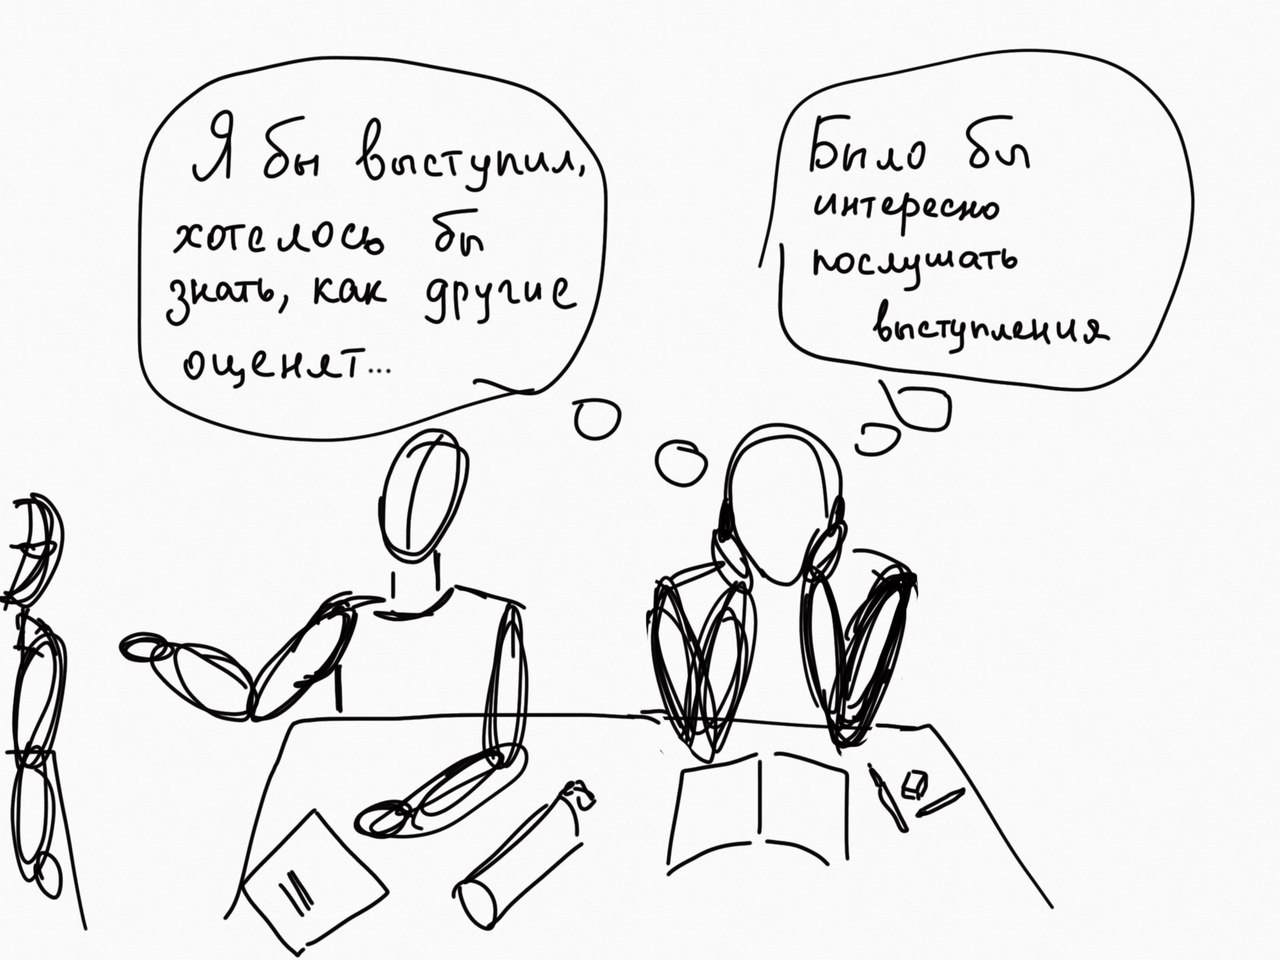 Я бы выступил,
хотелось бы
знать, как другие
оценят...
Было бы
интересно
послушать
выступления